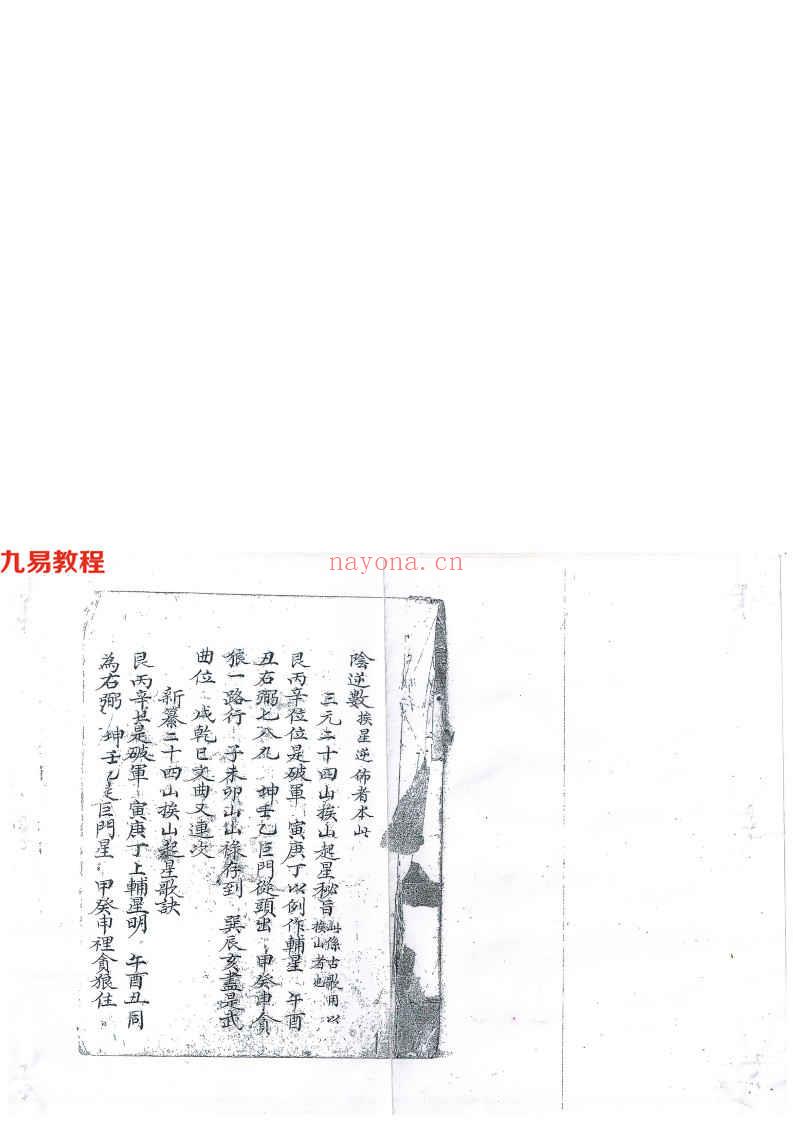 九易教程
nayona.cn
陰逆數 挨星逆佈者本此
三元二十四山挨山起星秘旨 此係古歌用以挨山者也
艮丙辛位位是破軍 寅庚丁以例作輔星 午酉
丑右弼七八九 坤壬乙巨門從頭出 甲癸申貪
狼一路行 子未卯山山祿存到 巽辰亥盡是武
曲位 戌乾巳文曲又連次
新纂二十四山挨山起星歌訣
艮丙辛 是破軍 寅庚丁上輔星明 午酉丑同
為右弼 坤壬乙 巨門星 甲癸申裡貪狼住